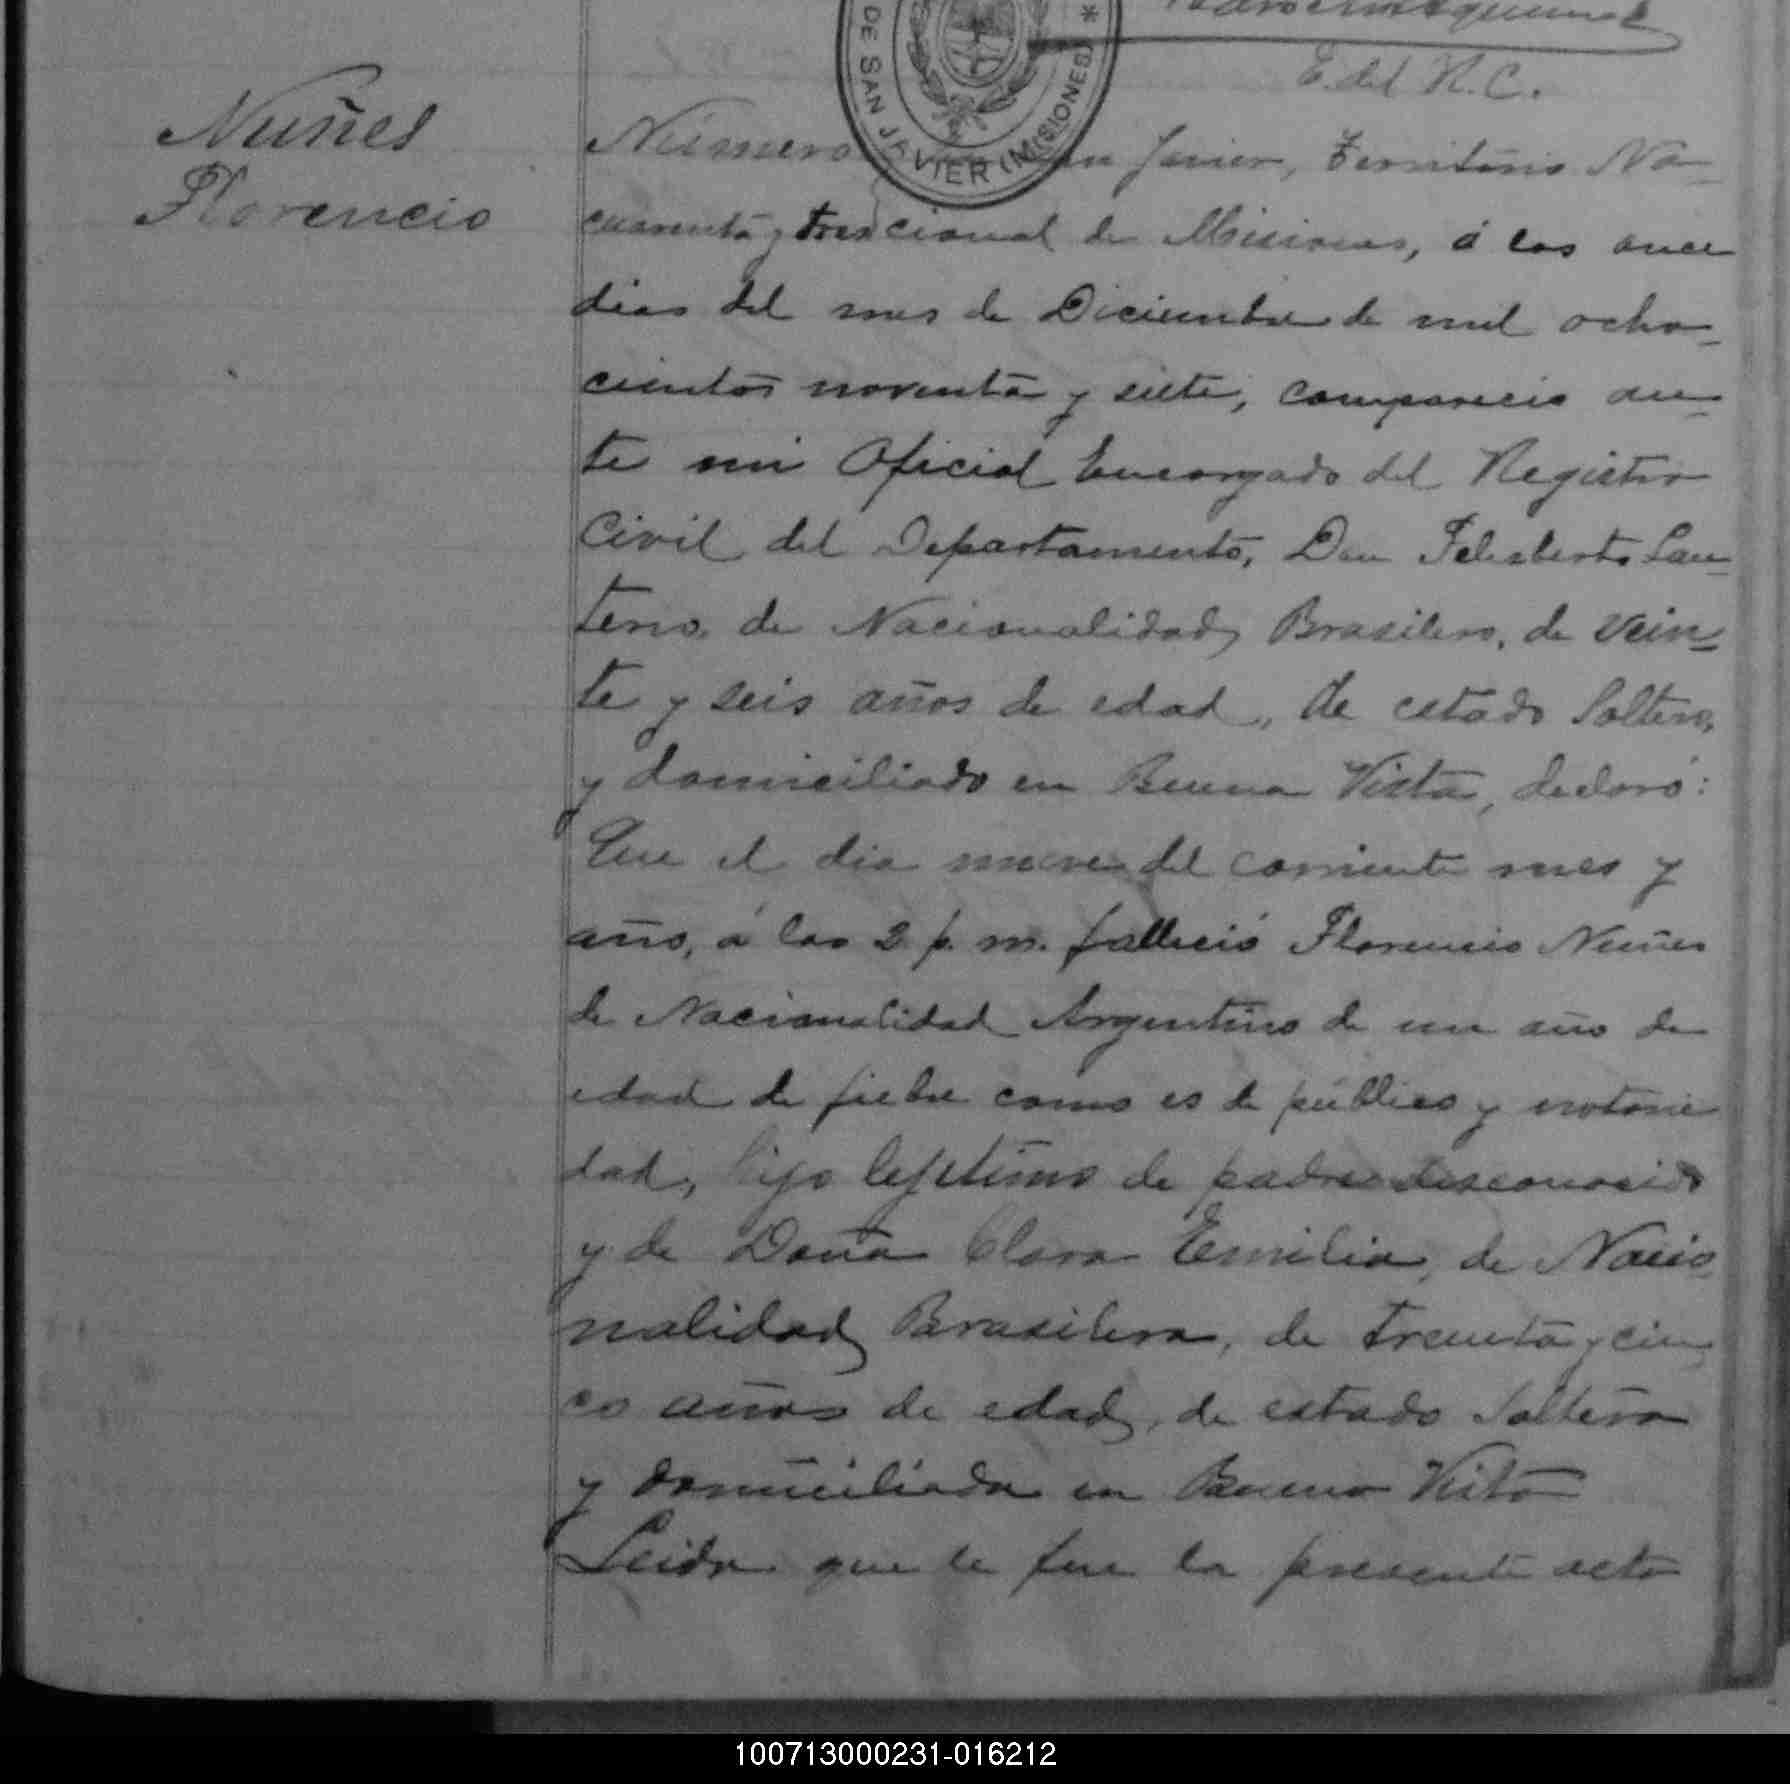 E. del R. C.
Nuñes
Florencio
DE SAN JAVIER (MISIONES) *
Número San Javier, Territorio Na-
cuarenta y tres cional de Misiones, á los once
dias del mes de Diciembre de mil ocho-
cientos noventa y siete, compareció an-
te mi Oficial Encargado del Registro
Civil del Departamento, Don Feliberto Lan-
tero, de Nacionalidad Brasilero, de vein-
te y seis años de edad, de estado Soltero,
y domiciliado en Buena Vista, declaró:
Que el dia nueve del corriente mes y
año, á las 2 p. m. falleció Florencio Nuñes
de Nacionalidad Argentino de un año de
edad de fiebre como es de público y notorie
dad, hijo lejitimo de padre desconocido
y de Doña Clara Emilia, de Nacio-
nalidad Brasilera, de treinta y cin-
co años de edad, de estado Soltera
y domiciliada en Buena Vista
Leida que le fue la presente acta
100713000231-016212